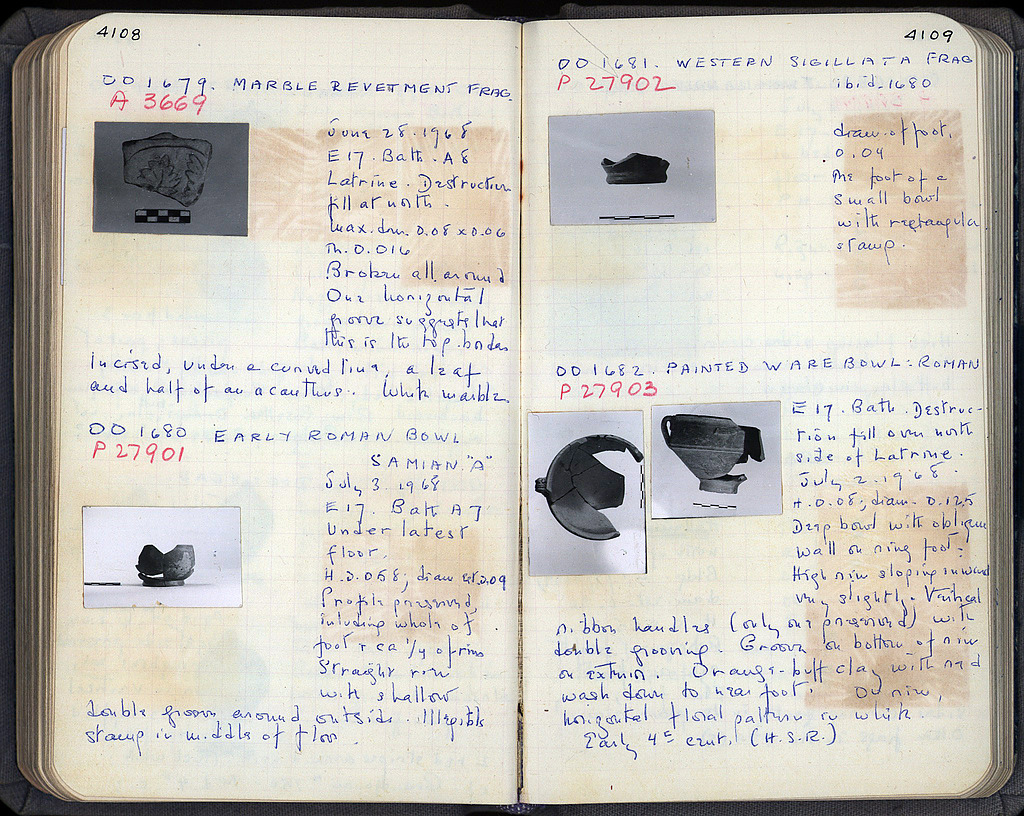 4108
OO 1679. MARBLE REVETMENT FRAG.
A 3669
June 28.1968
E 17. Bath. A 8
Latrine. Destruction
fill at north.
Max. dim. 0.08 x 0.06
Th. 0.016
Broken all around
One horizontal
groove suggests that
this is the top border
Incised, under a curved line, a leaf
and half of an acanthus. White marble.
OO 1680. EARLY ROMAN BOWL
P 27901
SAMIAN "A"
July 3. 1968
E 17. Bath A 7
Under latest
floor.
H. 0.058; diam est. 0.09
Profile preserved,
including whole of
foot + ca 1/4 of rim
Straight rim
with shallow
double groove around outside. Illegible
stamp in middle of floor
4109
OO 1681. WESTERN SIGILLATA FRAG
P 27902
ibid. 1680
diam. of foot,
0.04
The foot of a
small bowl
with rectangular
stamp.
OO 1682. PAINTED WARE BOWL: ROMAN
P 27903
E 17. Bath. Destruc-
tion fill over north
side of Latrine.
July 2. 1968.
H. 0.08; diam. 0.125
Deep bowl with oblique
wall on ring foot.
High rim sloping inward
very slightly. Vertical
ribbon handles (only one preserved) with
double grooving. Groove on bottom of rim
on exterior. Orange-buff clay with red
wash down to near foot. On rim,
horizontal floral pattern in white.
Early 4th cent. (H.S.R.)